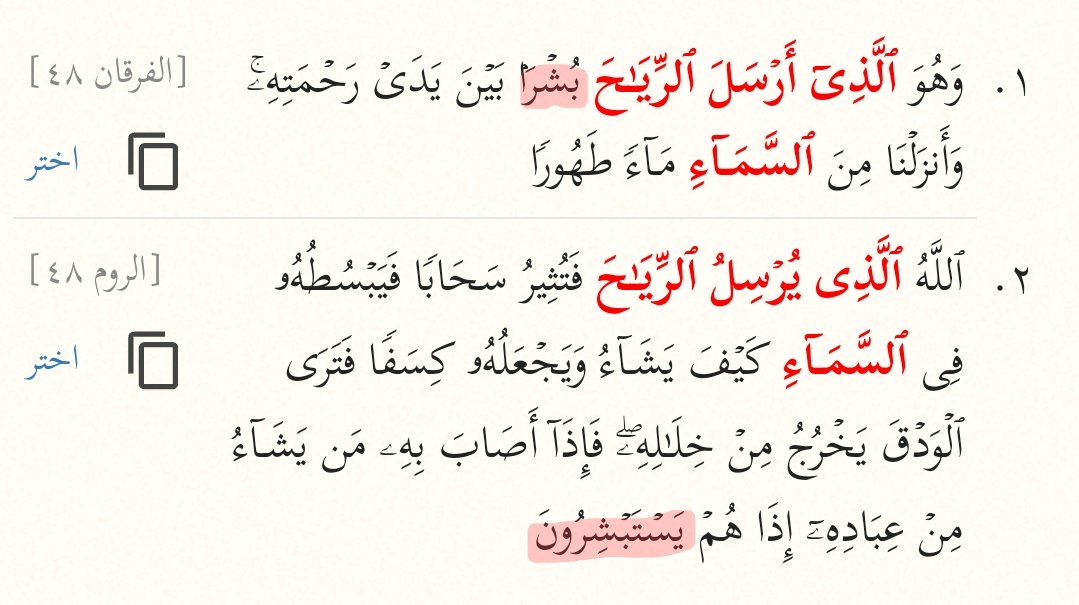 ١. وَهُوَ ٱلَّذِىٓ أَرْسَلَ ٱلرِّيَـٰحَ بُشْرًۢا بَيْنَ يَدَىْ رَحْمَتِهِۦۚ [الفرقان ٤٨]
وَأَنزَلْنَا مِنَ ٱلسَّمَآءِ مَآءً طَهُورًا اختر
٢. ٱللَّهُ ٱلَّذِى يُرْسِلُ ٱلرِّيَـٰحَ فَتُثِيرُ سَحَابًا فَيَبْسُطُهُۥ [الروم ٤٨]
فِى ٱلسَّمَآءِ كَيْفَ يَشَآءُ وَيَجْعَلُهُۥ كِسَفًا فَتَرَى اختر
ٱلْوَدْقَ يَخْرُجُ مِنْ خِلَـٰلِهِۦۖ فَإِذَآ أَصَابَ بِهِۦ مَن يَشَآءُ
مِنْ عِبَادِهِۦٓ إِذَا هُمْ يَسْتَبْشِرُونَ